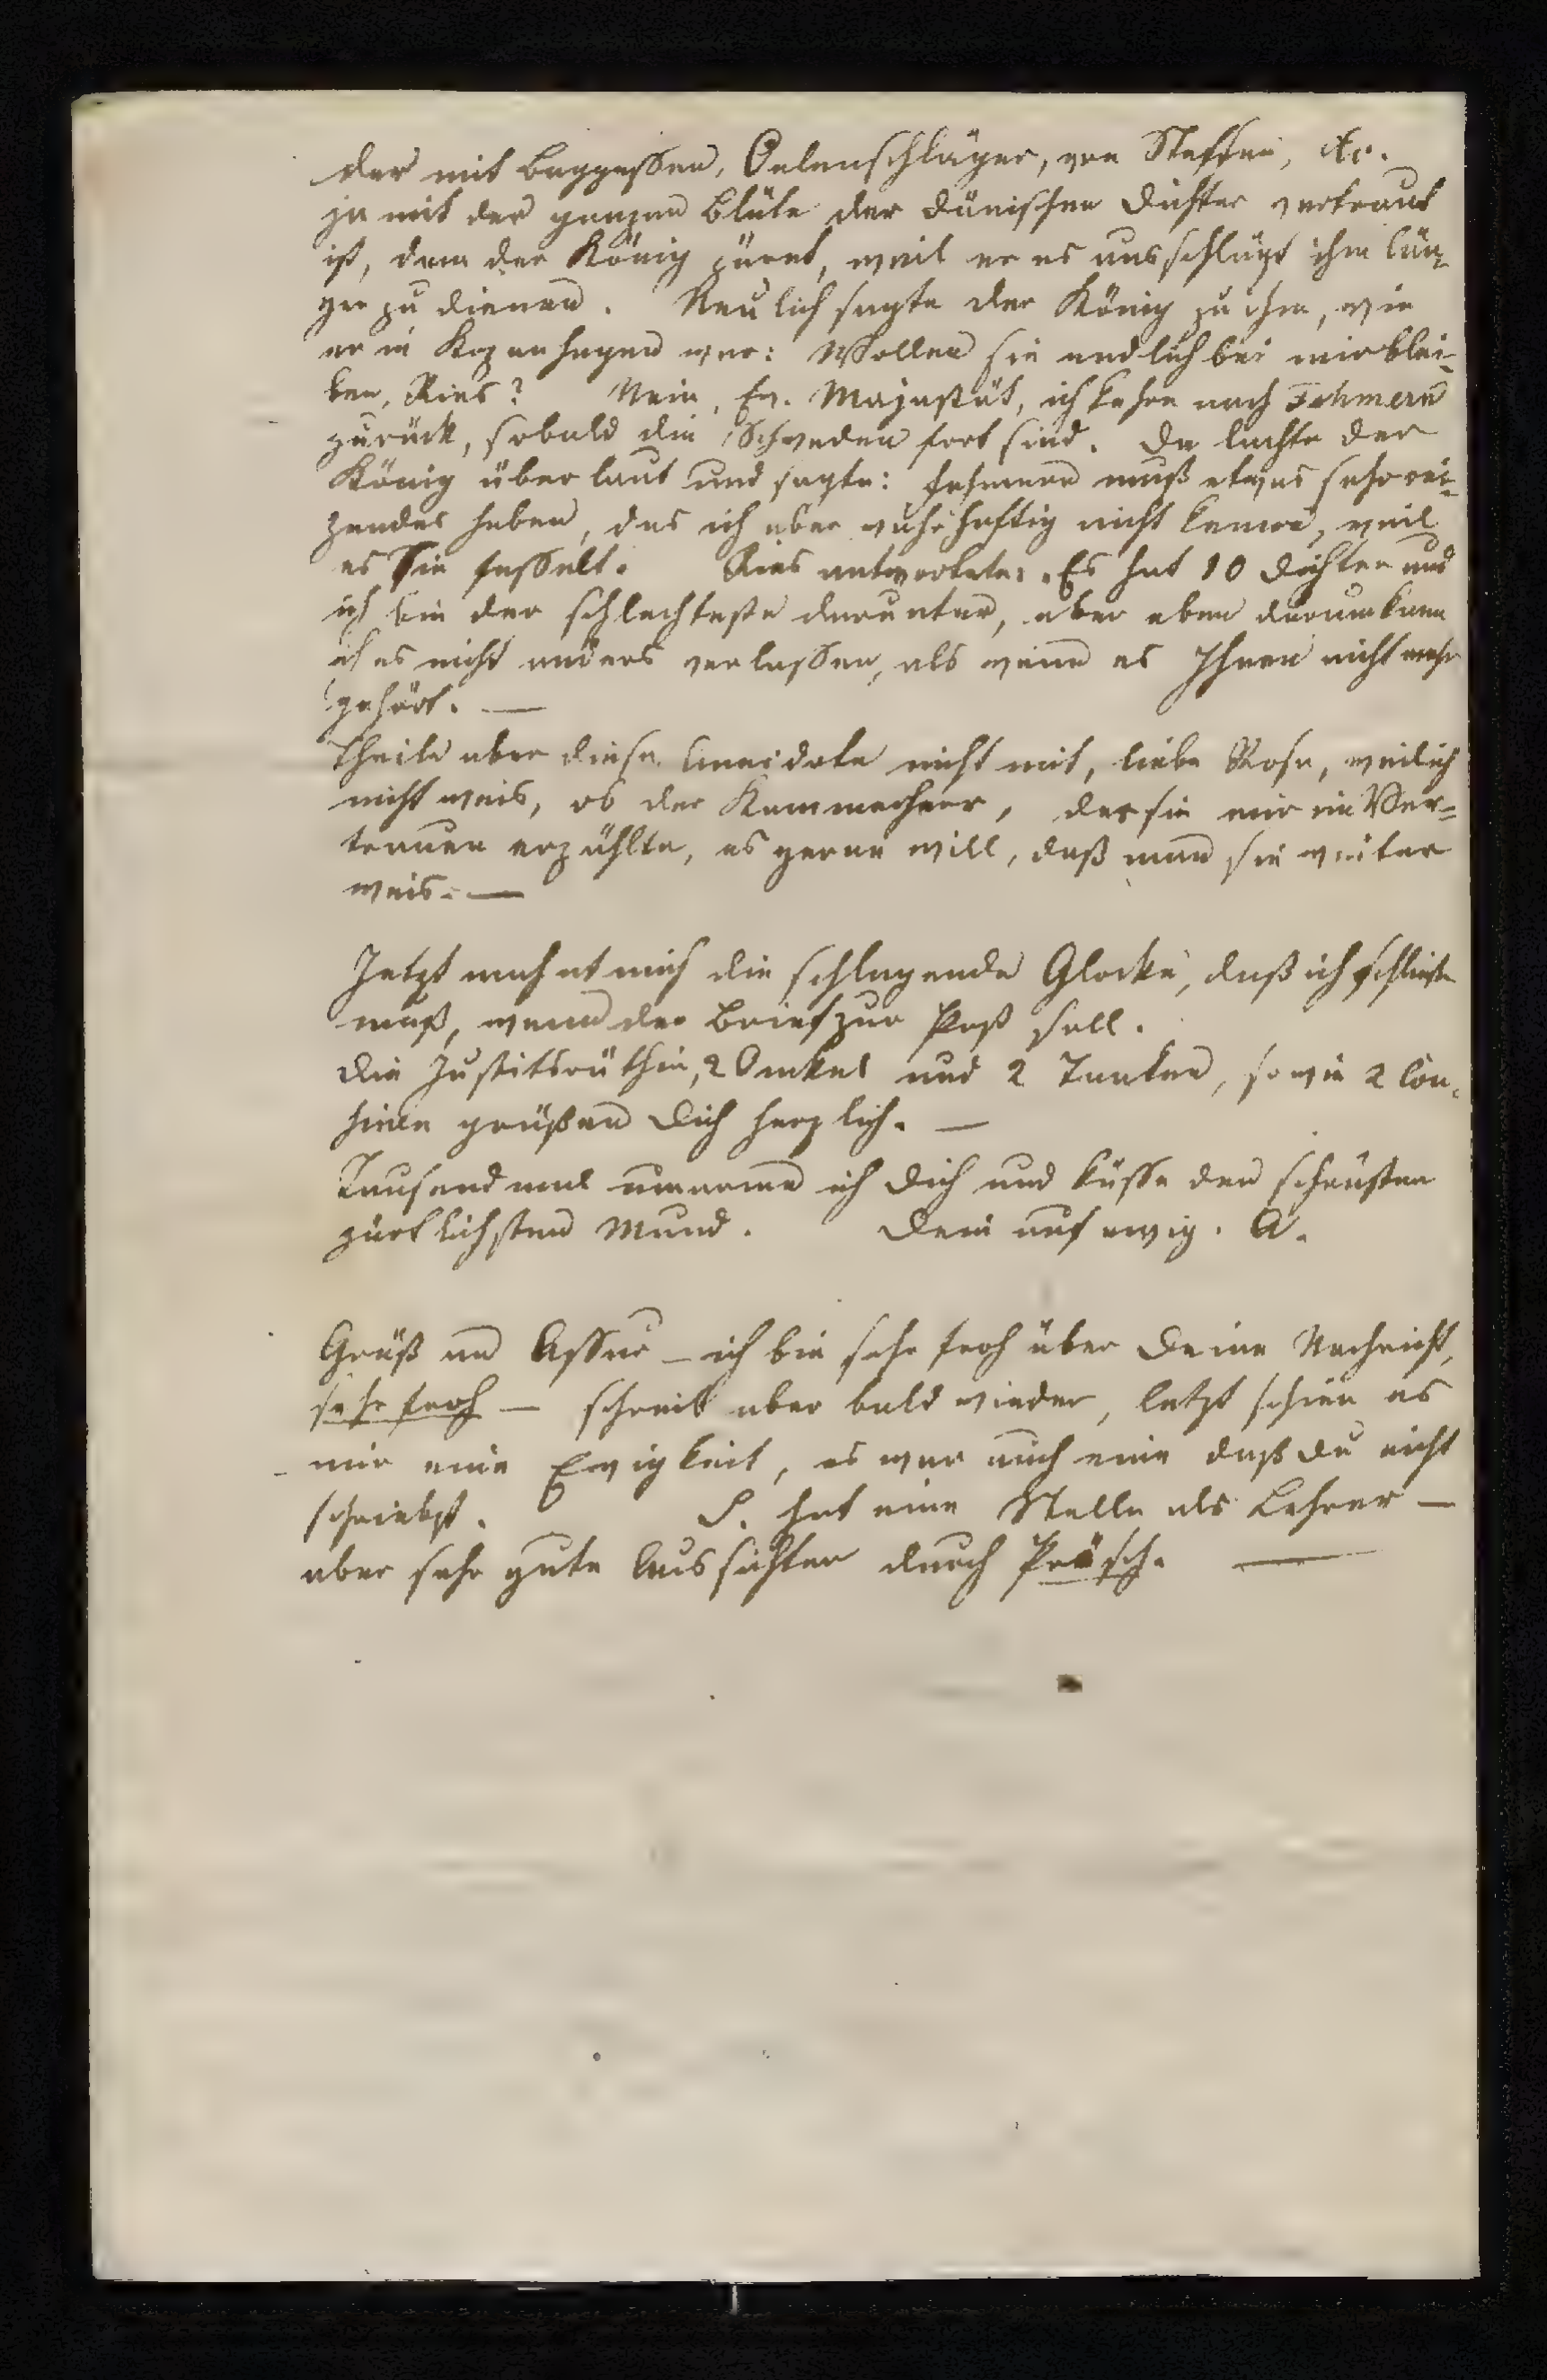 der mit Baggessen, Oelenschläger, von Steffen, etc.
ja mit der ganzen Blüte der dänischen Dichter vertraut
ist, dem der König zürnt, weil er es ausschlägt ihm län-
ger zu dienen. Neulich sagte der König zu ihm, wie
er in Kopenhagen war: Wollen sie endlich bei mir blei-
ben, Ries? Nein, Ew. Majestät, ich kehre nach Fehmern
zurück, sobald die Schweden fort sind. Da lachte der
König überlaut und sagte: Fehmern muß etwas sehr rei-
zendes haben, das ich aber wahrhaftig nicht kenne, weil
es Sie fesselt. Ries antwortete: Es hat 10 Dichter und
ich bin der schlechteste darunter, aber eben darum kann
ich es nicht anders verlassen, als wenn es Ihnen nicht mehr
gehört. —
Theile aber diese Anecdote nicht mit, liebe Rosa, weil ich
nicht weis, ob der Kammerherr, der sie mir im Ver=
trauen erzählte, es gerne will, daß man sie weiter
weis. —
Jetzt mahnt mich die schlagende Glocke, daß ich schließen
muß, wenn der Brief zur Post soll.
Die Justitsräthin, 2 Onkel und 2 Tanten, sowie 2 Cou-
sinen grüßen Dich herzlich. —
Tausendmal umarme ich Dich und küsse den schönsten
zärtlichsten Mund. Dein auf ewig. A.
Grüß an Assur — ich bin sehr froh über Deine Nachricht,
sehr froh — schreib aber bald wieder, letzt schien es
mir eine Ewigkeit, es war auch eine daß du nicht
schriebst. S. hat eine Stelle als Lehrer —
aber sehr gute Aussichten durch Präsch. —